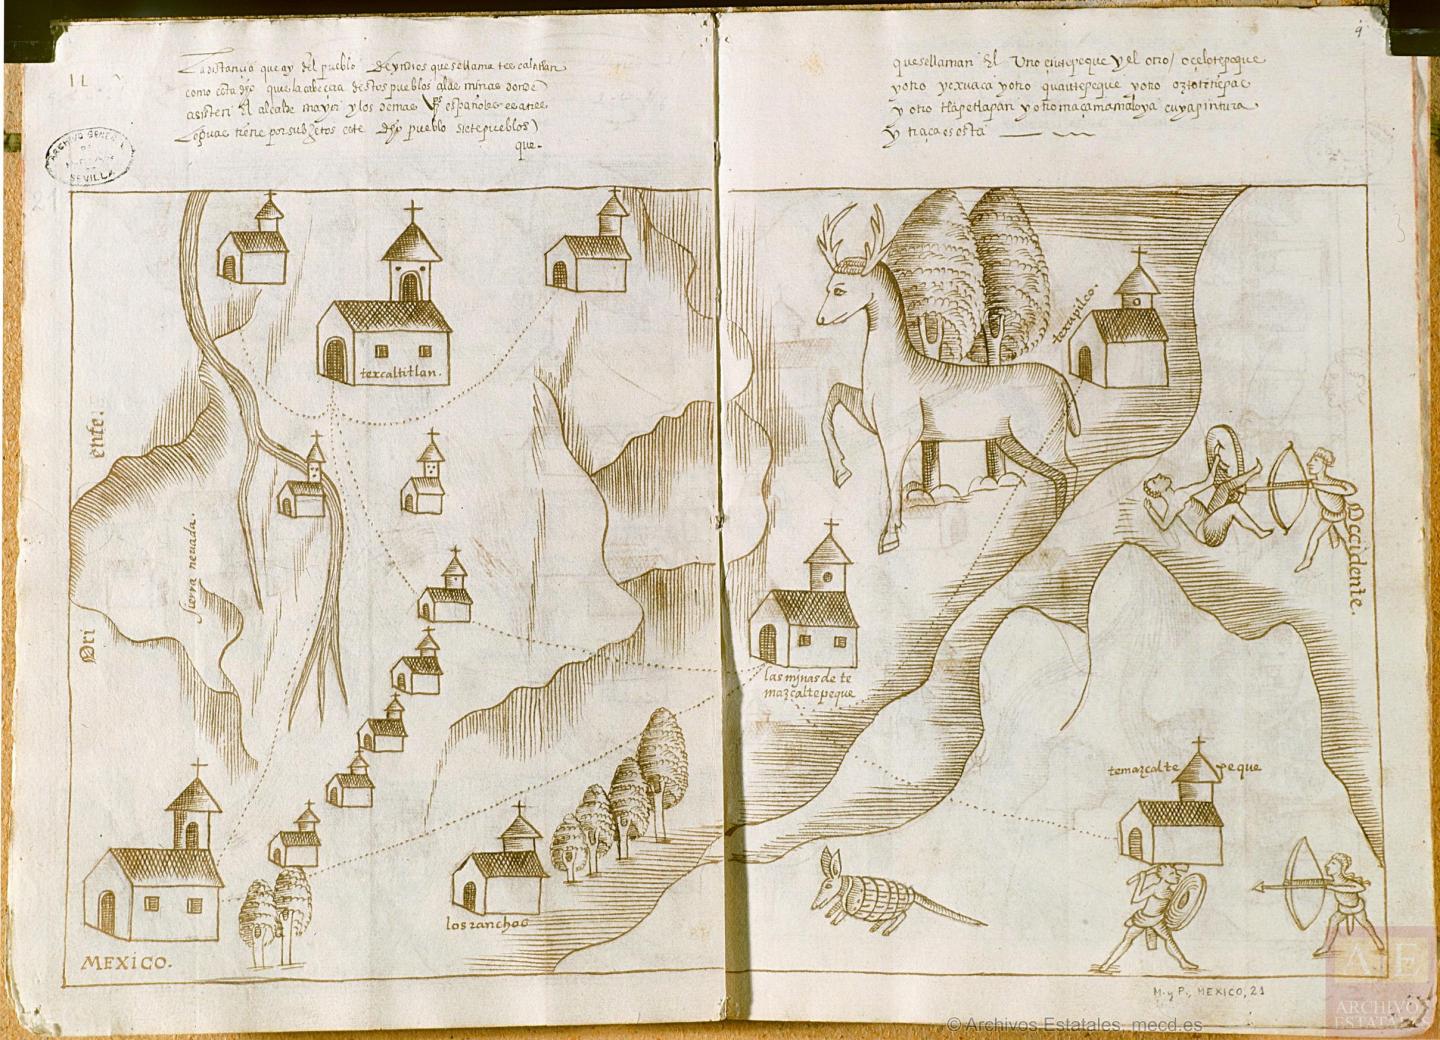 IL
La distancia que ay del pueblo De yndios que se llama texcaltitlan
como esta dho que la cabecera destos pueblos alde minas donde
asisten El alcalde mayor y los demas españoles
tiene por subjetos este dho pueblo siete pueblos
que.
9
que se llaman El Uno y el otro / ocelotepeque
y otro yexuaca y otro quautepeque y otro oztotitlpac
y otro tlapetlapan y otro maçamamaloya cuya pintura
y traça es esta
ARCHIVO GENERAL
DE
INDIAS
SEVILLA
texcaltitlan.
texupilco.
Oriente.
sierra neuada.
Occidente.
las mynas de te
mazcaltepeque
temazcaltepeque
los ranchos
MEXICO.
M. y P., MEXICO, 21
A E
ARCHIVOS
ESTATALES
© Archivos Estatales, mecd.es